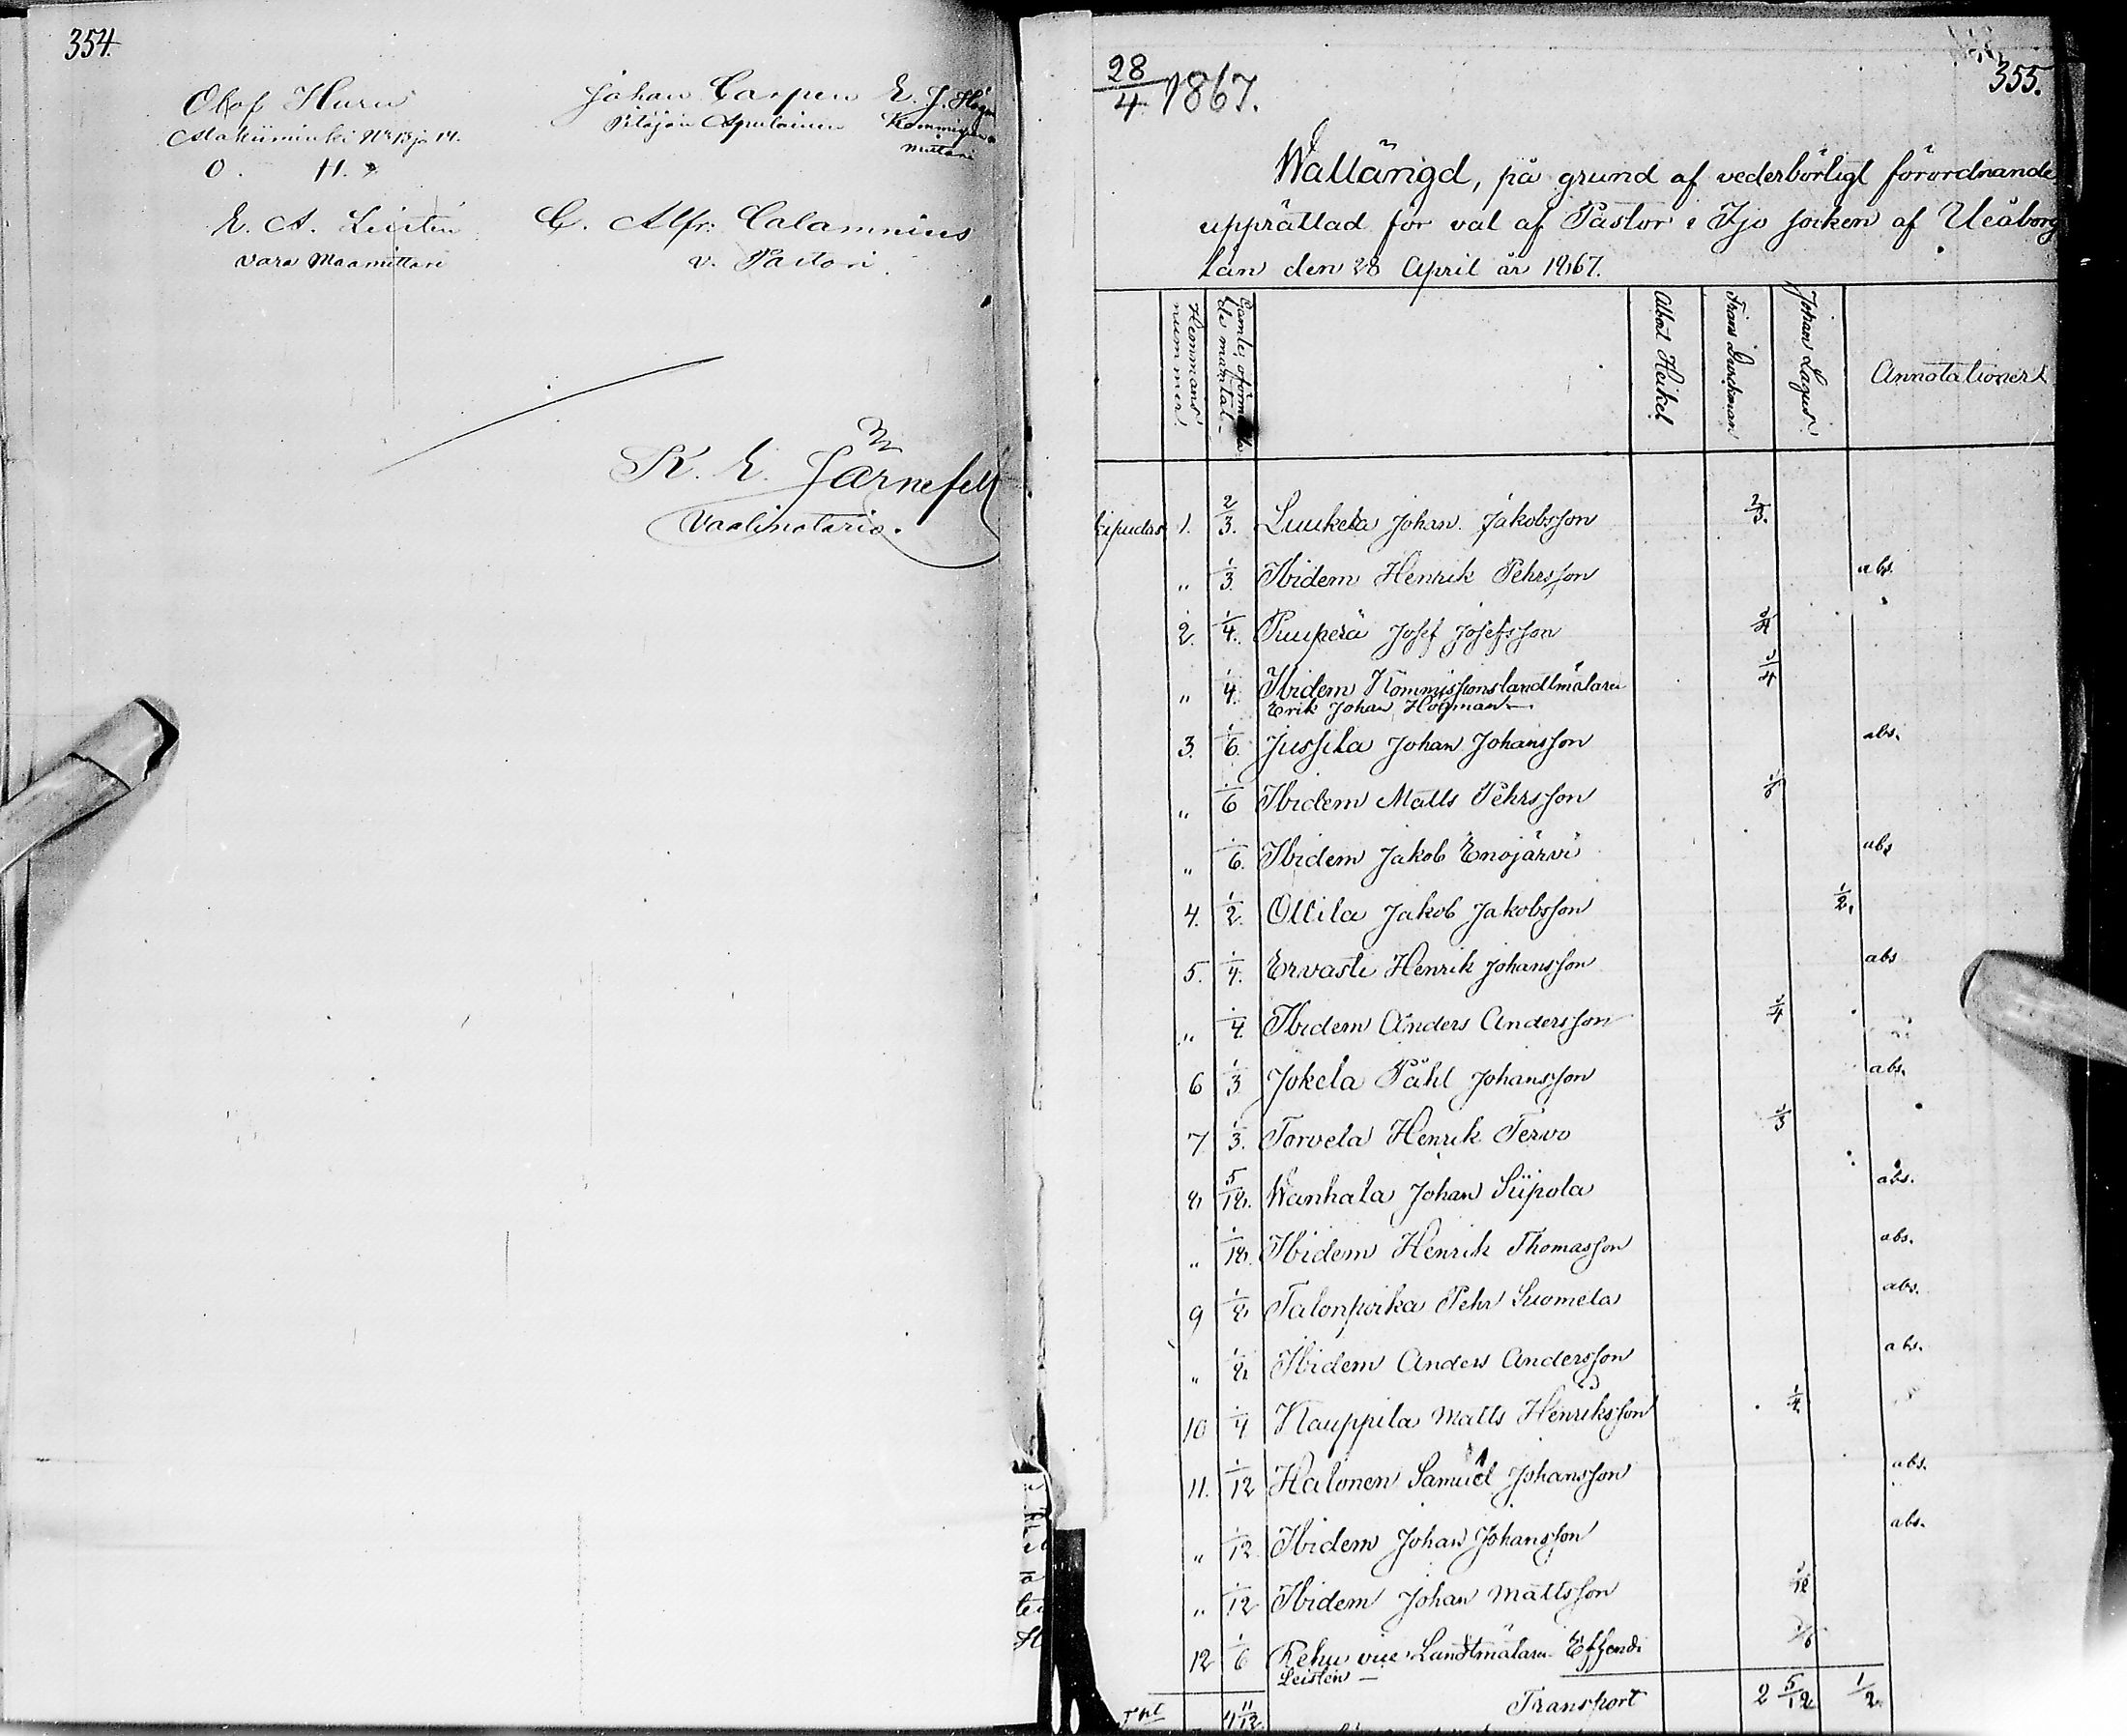 354.
Olof Huru Johan Carpen E. J. Högm
Makiiminki No 13 ja 14. Pitäjän Apulainen Kommisioni
mittari
O. H.
E. A. Leistén C. Alfr. Calamnius
vara Maamittari v. Pastori.
K. E. Järnefelt
Vaalinotario.
28/4 1867.
355.
Vallängd, på grund af vederbörligt förordnande
upprättad för val af Pastor i Ijo socken af Uleåborg
län den 28 April år 1867.
Hemmans nummer. Gamla, oförmedlade mantal. Albert Heikel Frans Durchman Johan Lagus. Annotationer
Kipudas 1. 2/3. Luukela Johan Jakobsson 2/3.
" 1/3. Ibidem Henrik Pehrsson abs.
2. 1/4. Puuperä Josef Josefsson 1/4
" 1/4. Ibidem Kommissionslandtmätaren 1/4
Erik Johan Högman
3. 1/6. Jussila Johan Johansson abs.
" 1/6 Ibidem Matts Pehrsson 1/6
" 1/6. Ibidem Jakob Enojärvi abs
4. 1/2. Ollila Jakob Jakobsson 1/2.
5. 1/4. Ervasti Henrik Johansson abs
" 1/4. Ibidem Anders Andersson 1/4
6 1/3 Jokela Påhl Johansson abs.
7 1/3. Torvela Henrik Tervo 1/3
8 5/18. Wanhala Johan Siipola abs.
" 1/18. Ibidem Henrik Thomasson abs.
9 1/8 Talonpoika Pehr Suomela abs.
" 1/8 Ibidem Anders Andersson abs.
10 1/4 Kauppila Matts Henriksson 1/4
11. 1/12 Halonen Samuel Johansson abs.
" 1/12 Ibidem Johan Johansson abs.
" 1/12 Ibidem Johan Mattsson 1/12
12 1/6 Rehu vice Landtmätaren Effendi 1/6
Leistén
4 11/12. Transport 2 5/12 1/2.